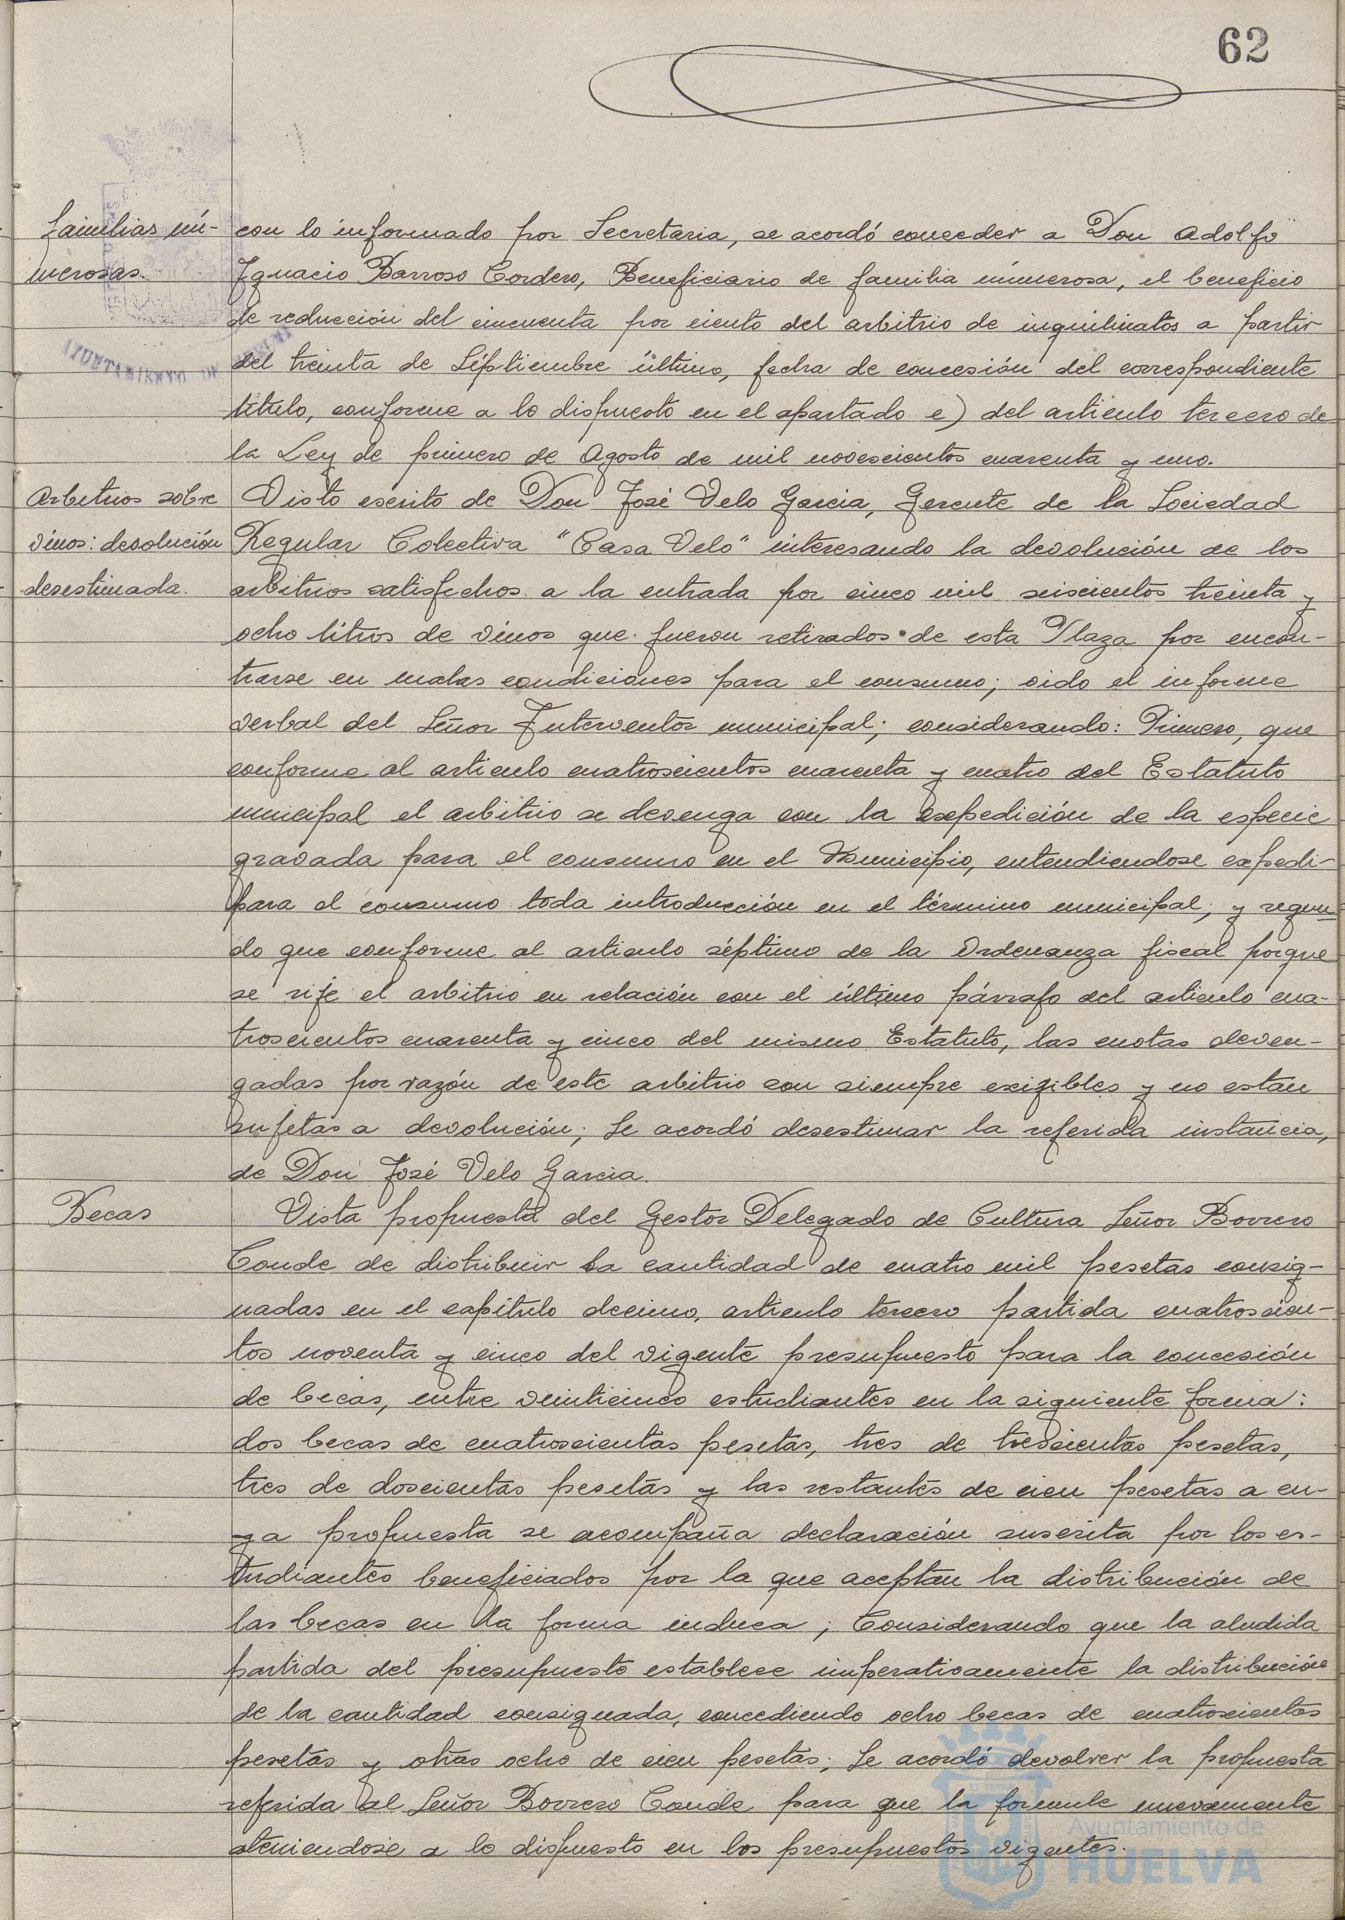 62
familias nú-
merosas.
con lo informado por Secretaria, se acordó conceder a Don Adolfo
Ignacio Barroso Cordero, Beneficiario de familia númerosa, el beneficio
de reducción del cincuenta por ciento del arbitrio de inquilinatos a partir
del treinta de Séptiembre último, fecha de concesión del correspondiente
titulo, conforme a lo dispuesto en el apartado e) del articulo tercero de
la Ley de primero de Agosto de mil novescientos cuarenta y uno.
Arbitrios sobre
vinos: devolución
desestimada.
Visto escrito de Don José Velo Garcia, Gerente de la Sociedad
Regular Colectiva "Casa Velo" interesando la devolución de los
arbitrios satisfechos a la entrada por cinco mil seiscientos treinta y
ocho litros de vinos que fueron retirados de esta Plaza por encon-
trarse en malas condiciones para el consumo; oido el informe
verbal del Señor Interventor municipal; considerando: Primero, que
conforme al articulo cuatroscientos cuarenta y cuatro del Estatuto
municipal el arbitrio se devenga con la expedición de la especie
gravada para el consumo en el Municipio, entendiendose expedi-
para el consumo toda introducción en el término municipal; y segun-
do que conforme al articulo séptimo de la Ordenanza fiscal porque
se rije el arbitrio en relación con el último párrafo del articulo cua-
troscientos cuarenta y cinco del mismo Estatuto, las cuotas deven-
gadas por razón de este arbitrio son siempre exigibles y no estan
sujetas a devolución; Se acordó desestimar la referida instancia,
de Don José Velo Garcia.
Becas
Vista propuesta del Gestor Delegado de Cultura Señor Borrero
Conde de distribuir la cantidad de cuatro mil pesetas consig-
nadas en el capítulo decimo, articulo tercero partida cuatroscien-
tos noventa y cinco del vigente presupuesto para la concesión
de becas, entre veinticinco estudiantes en la siguiente forma:
dos becas de cuatroscientas pesetas, tres de trescientas pesetas,
tres de doscientas pesetas y las restantes de cien pesetas a cu-
ya propuesta se acompaña declaración suscrita por los es-
tudiantes beneficiados por la que aceptan la distribución de
las becas en la forma induca; Considerando que la aludida
partida del presupuesto establece imperativamente la distribución
de la cantidad consignada, concediendo ocho becas de cuatroscientas
pesetas y otras ocho de cien pesetas; Se acordó devolver la propuesta
referida al Señor Borrero Conde para que la formule nuevamente
ateniendose a lo dispuesto en los presupuestos vigentes.
Ayuntamiento de
HUELVA